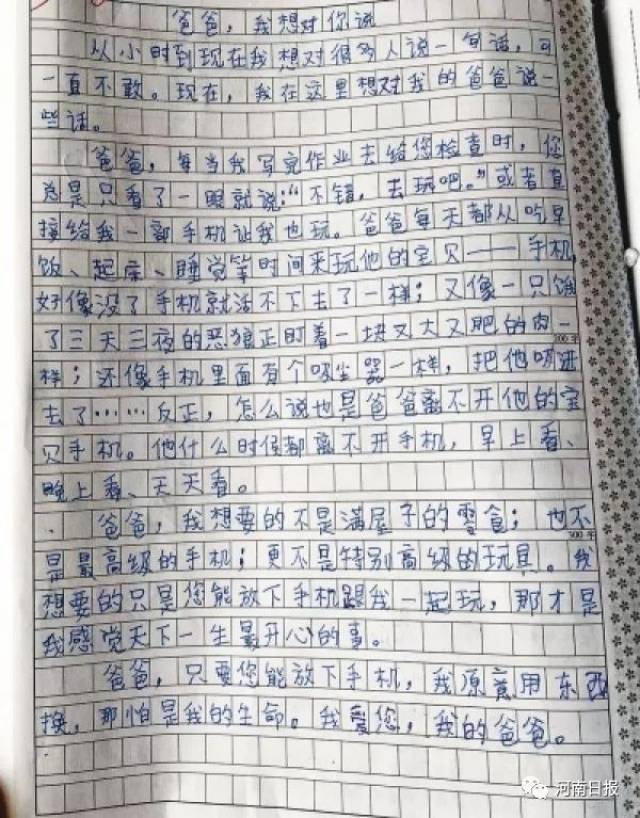 爸爸，我想对你说
从小时到现在我想对很多人说一句话，可
一直不敢。现在，我在这里想对我的爸爸说一
些话。
爸爸，每当我写完作业去给您检查时，您
总是只看了一眼就说：“不错，去玩吧。”或者直
接给我一部手机让我也玩。爸爸每天都从吃早
饭、起床、睡觉等时间来玩他的宝贝——手机，
好像没了手机就活不下去了一样；又像一只饿
了三天三夜的恶狼正盯着一块又大又肥的肉一
200字
样；还像手机里面有个吸尘器一样，把他吸进
去了……反正，怎么说也是爸爸离不开他的宝
贝手机。他什么时候都离不开手机，早上看、
晚上看、天天看。
爸爸，我想要的不是满屋子的零食；也不
300字
是最高级的手机；更不是特别高级的玩具。我
想要的只是您能放下手机跟我一起玩，那才是
我感觉天下一生最开心的事。
爸爸，只要您能放下手机，我原意用东西
换，那怕是我的生命。我爱您，我的爸爸。
河南日报